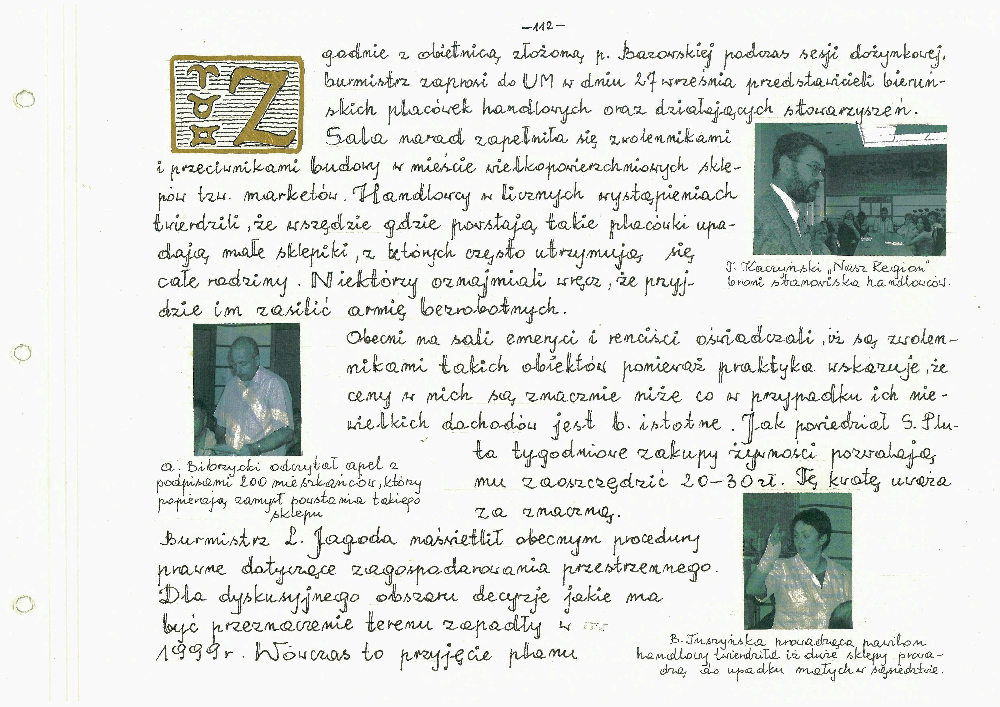 -112-
Z
godnie z obietnicą złożoną p. Barowskiej podczas sesji dożynkowej,
burmistrz zaprosi do UM w dniu 27 września przedstawicieli bieruń-
skich placówek handlowych oraz działających stowarzyszeń.
Sala narad zapełniła się zwolennikami
i przeciwnikami budowy w mieście wielkopowierzchniowych skle-
pów tzw. marketów. Handlowcy w licznych wystąpieniach
twierdzili, że wszędzie gdzie powstają takie placówki upa-
dają małe sklepiki, z których często utrzymują się
całe rodziny. Niektórzy oznajmiali wręcz, że przyj-
dzie im zasilić armię bezrobotnych.
J. Kaczyński „Nasz Region"
broni stanowiska handlowców.
Obecni na sali emeryci i renciści oświadczali, iż są zwolen-
nikami takich obiektów ponieważ praktyka wskazuje, że
ceny w nich są znacznie niże co w przypadku ich nie-
wielkich dochodów jest b. istotne. Jak powiedział S. Plu-
ta tygodniowe zakupy żywności pozwalają
mu zaoszczędzić 20-30 zł. Tę kwotę uważa
za znaczną.
A. Bibrzycki odczytał apel z
podpisami 200 mieszkańców, który
popierają zamysł powstania takiego
sklepu
Burmistrz L. Jagoda naświetlił obecnym procedury
prawne dotyczące zagospodarowania przestrzennego.
Dla dyskusyjnego obszaru decyzje jakie ma
być przeznaczenie terenu zapadły w
1999 r. Wówczas to przyjęcie planu
B. Tuszyńska prowadząca pawilon
handlowy twierdziła iż duże sklepy prowa-
dzą do upadku małych w sąsiedztwie.